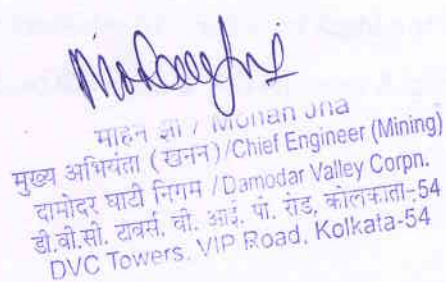 मोहन झा / Mohan Jha
मुख्य अभियंता (खनन)/Chief Engineer (Mining)
दामोदर घाटी निगम / Damodar Valley Corpn.
डी.वी.सी. टावर्स, वी. आई. पी. रोड, कोलकाता-54
DVC Towers, VIP Road, Kolkata-54